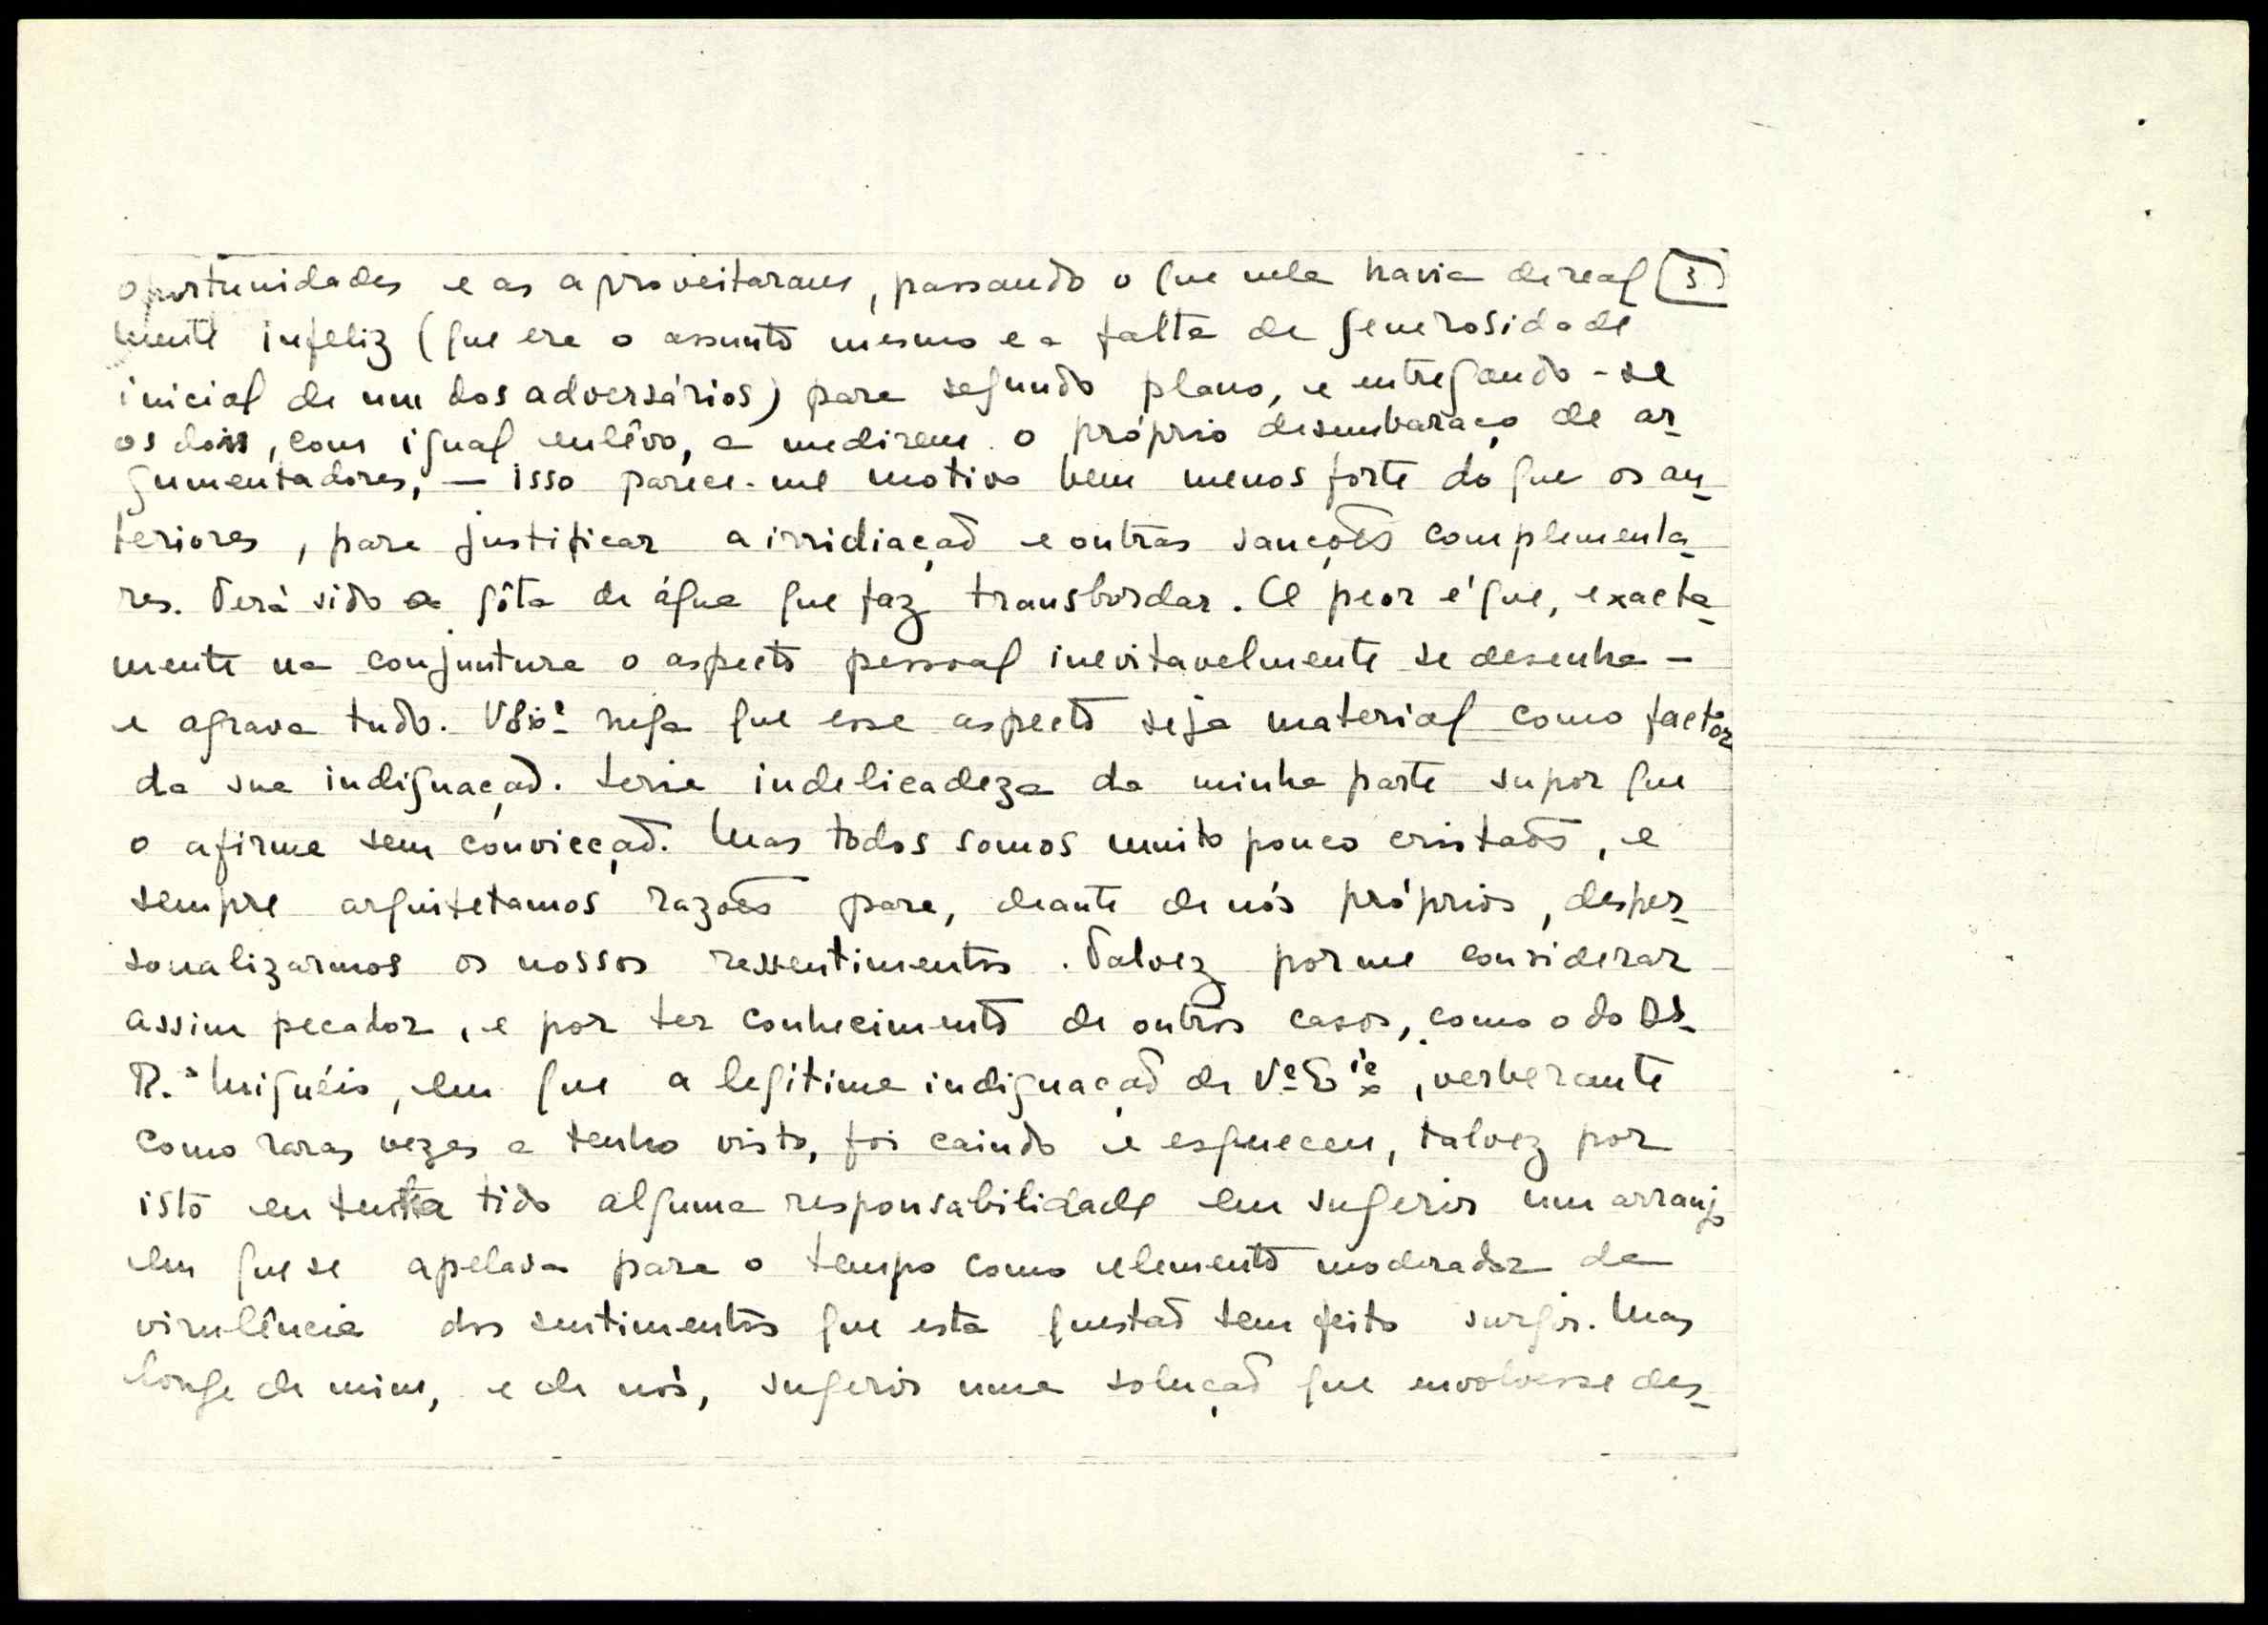 oportunidades e as aproveitaram, passando o que nela havia de real [3]
mente infeliz (que era o assunto mesmo e a falta de generosidade
inicial de um dos adversários) para segundo plano, e entregando-se
os dois, com igual enlêvo, a medirem o próprio desembaraço de ar-
gumentadores, — isso parece-me motivo bem menos forte do que os an-
teriores, para justificar a irridiação e outras sanções complementa-
res. Terá sido a gôta de água que faz transbordar. O peor é que, exacta-
mente na conjuntura o aspecto pessoal inevitavelmente se desenha —
e agrava tudo. VExª nega que esse aspecto seja material como factor
da sua indignação. Seria indelicadeza da minha parte supor que
o afirme sem convicção. Mas todos somos muito pouco cristãos, e
sempre arquitetamos razões para, deante de nós próprios, desper-
sonalizarmos os nossos ressentimentos. Talvez por me considerar
assim pecador, e por ter conhecimento de outros casos, como o do
R. Miguéis, em que a legítima indignação de Vª Exª, verberante
como raras vezes a tenho visto, foi caindo e esqueceu, talvez por
isto eu tenha tido alguma responsabilidade em sugerir um arranjo
em que se apelasse para o tempo como elemento moderador da
virulência dos sentimentos que esta questão tem feito surgir. Mas
longe de mim, e de nós, sugerir uma solução que envolvesse des-